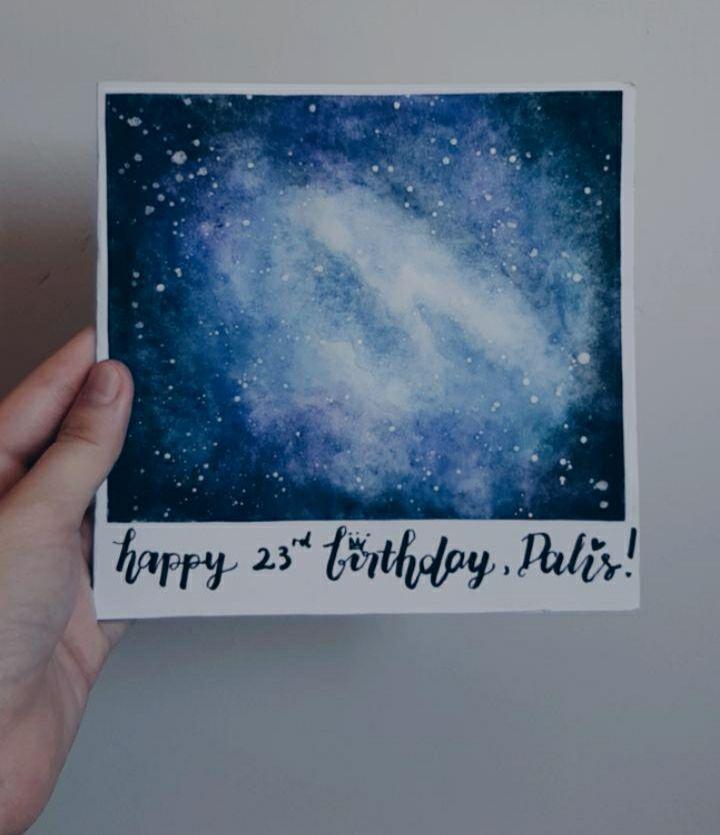 happy 23rd birthday, Dalis!